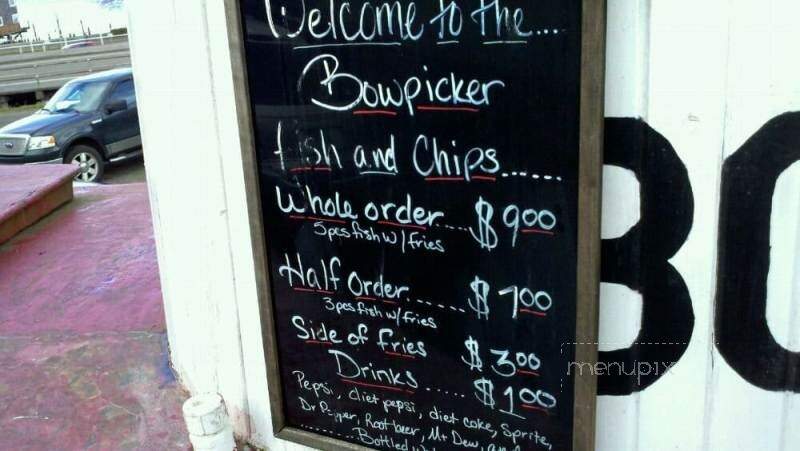 Welcome to the....
Bowpicker
Fish and Chips......
Whole order.... $9.00
5pcs fish w/ fries
Half Order...... $7.00
3pcs fish w/fries
Side of fries $3.00
Drinks..... $1.00
Pepsi, diet pepsi, diet coke, Sprite,
Dr Pepper, Root beer, Mt Dew, and
.........Bottled
BO
menupix